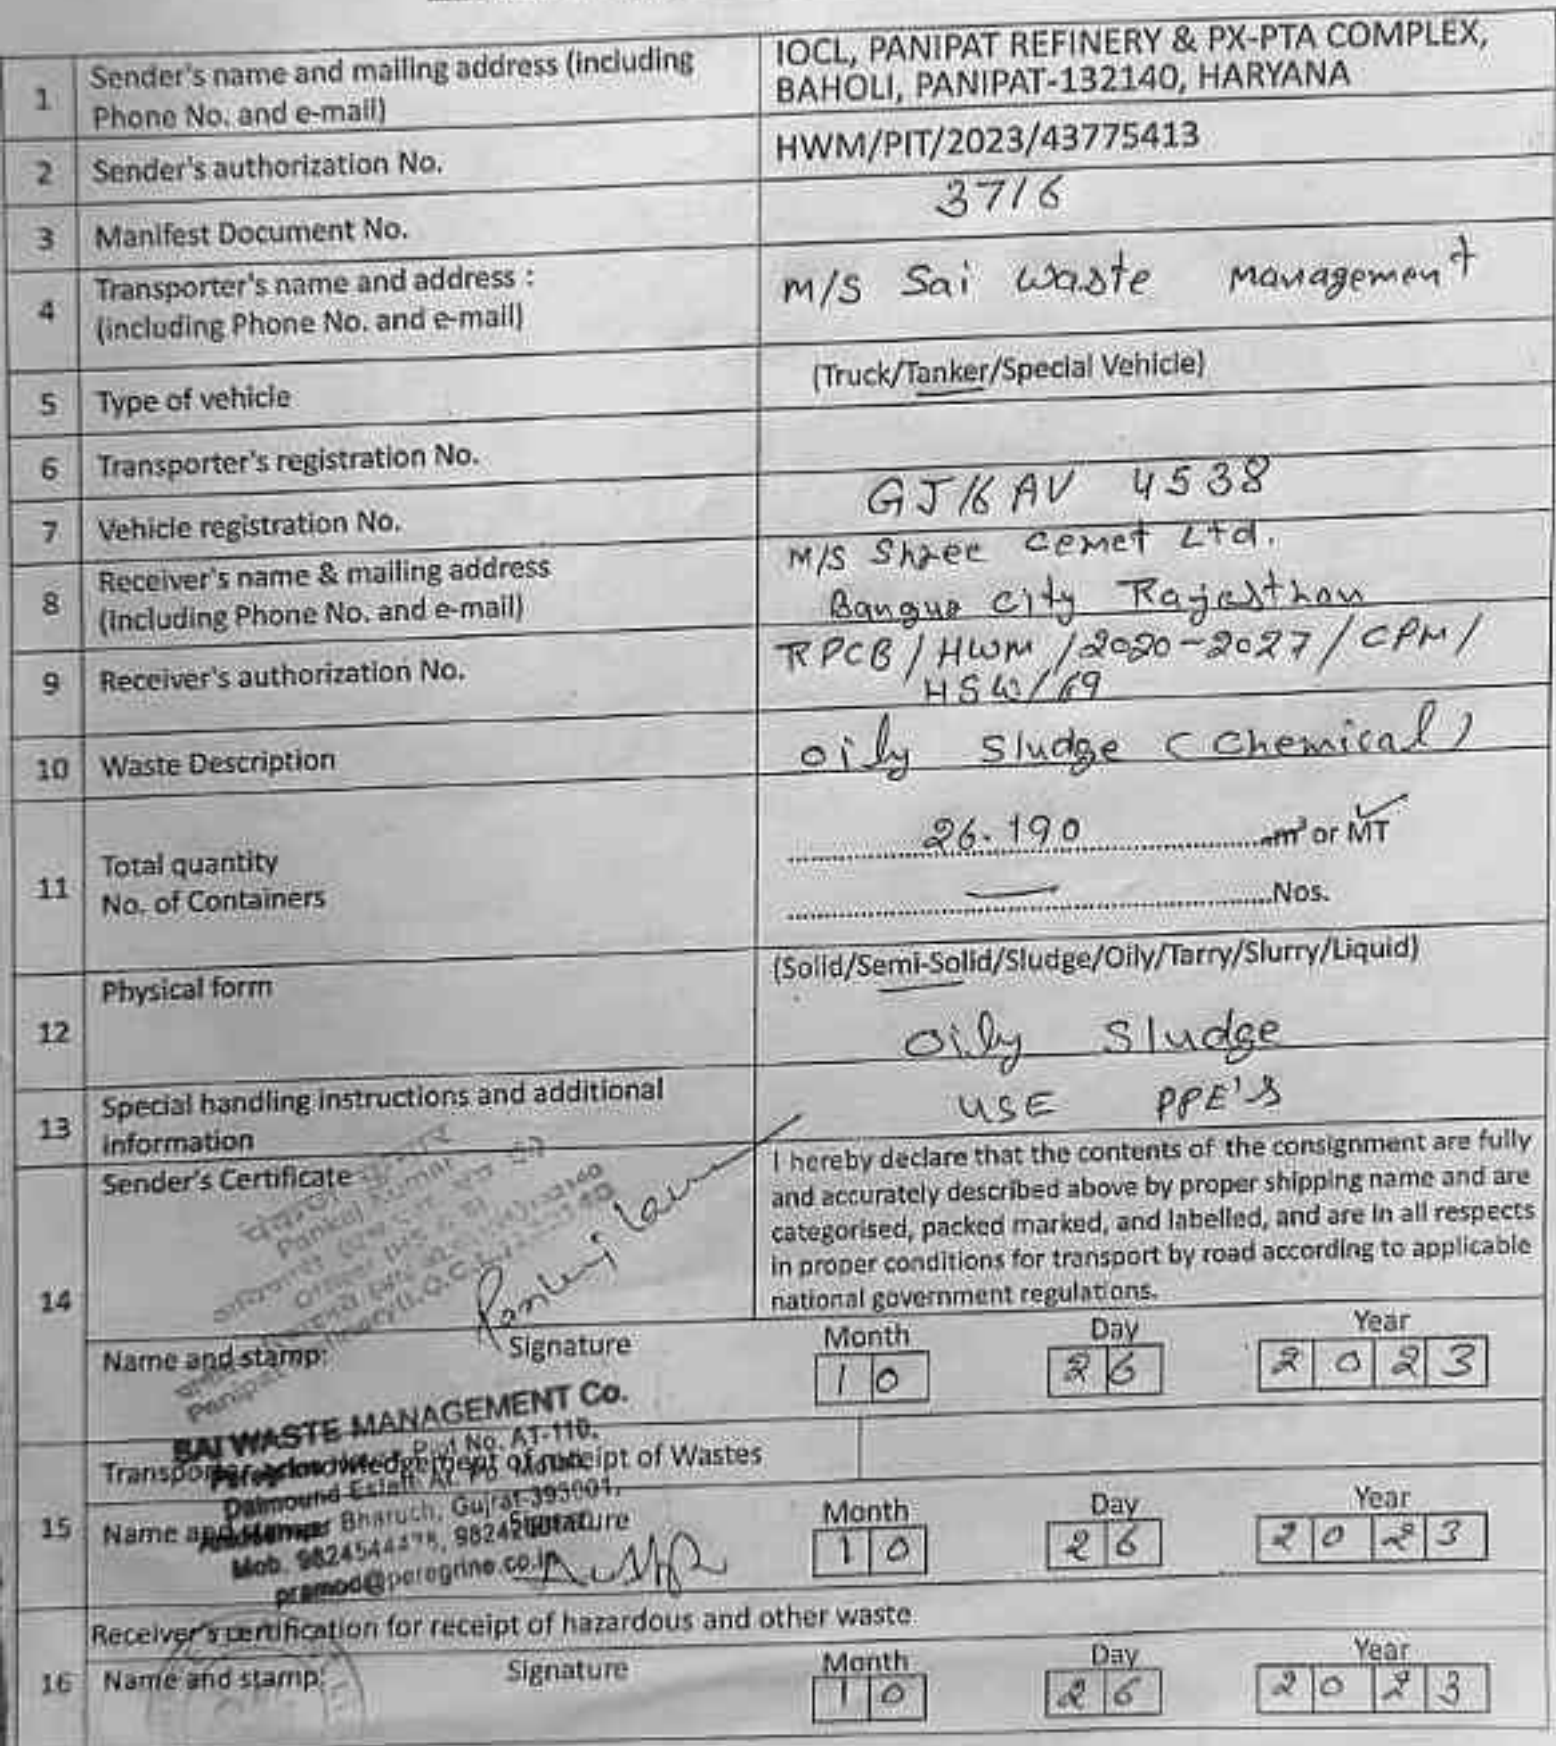 1 Sender's name and mailing address (including
Phone No. and e-mail)
IOCL, PANIPAT REFINERY & PX-PTA COMPLEX,
BAHOLI, PANIPAT-132140, HARYANA
2 Sender's authorization No.
HWM/PIT/2023/43775413
3 Manifest Document No.
3716
4 Transporter's name and address :
(including Phone No. and e-mail)
M/S Sai Waste Management
5 Type of vehicle
(Truck/Tanker/Special Vehicle)
6 Transporter's registration No.
7 Vehicle registration No.
GJ16 AV 4538
8 Receiver's name & mailing address
(including Phone No. and e-mail)
M/S Shree Cemet Ltd.
City Rajasthan
9 Receiver's authorization No.
RPCB/HWM/2020-2027/CPM/
HSW/69
10 Waste Description
Oily Sludge (Chemical)
11 Total quantity
No. of Containers
26.190 m³ or MT
Nos.
12 Physical form
(Solid/Semi-Solid/Sludge/Oily/Tarry/Slurry/Liquid)
Oily Sludge
13 Special handling instructions and additional
information
USE PPE'S
14 Sender's Certificate
Pankaj Kumar
I hereby declare that the contents of the consignment are fully
and accurately described above by proper shipping name and are
categorised, packed marked, and labelled, and are in all respects
in proper conditions for transport by road according to applicable
national government regulations.
Name and stamp: Signature
Month Day Year
10 26 2023
SAI WASTE MANAGEMENT Co.
Plot No. AT-110,
15 Transporter acknowledgement of receipt of Wastes
Bharuch, Gujrat-393001,
Name and stamp: Signature
Mob.
pramod@peregrine.co.in
Month Day Year
10 26 2023
16 Receiver's certification for receipt of hazardous and other waste
Name and stamp: Signature
Month Day Year
10 26 2023